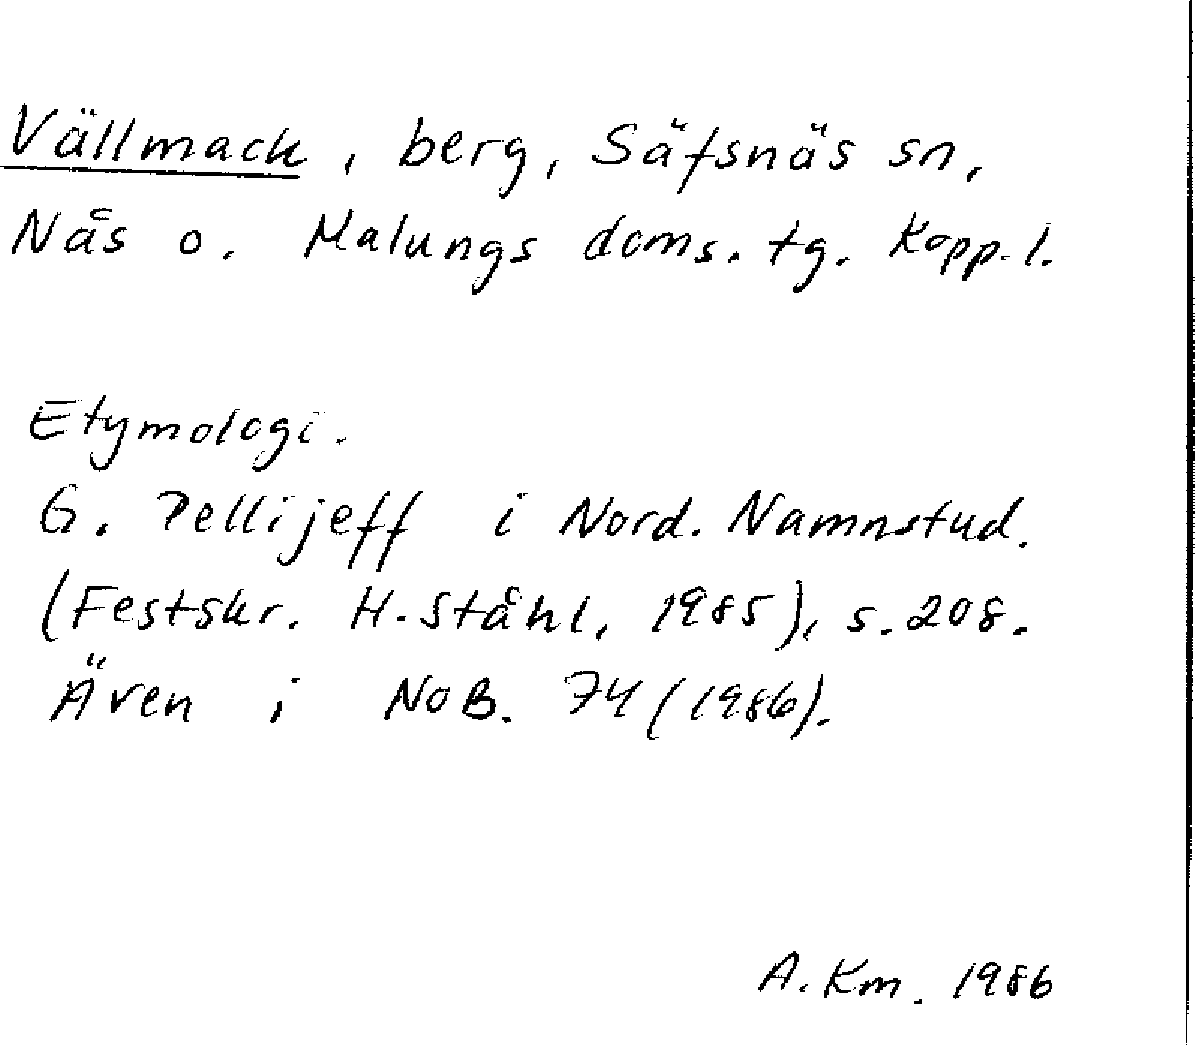 Vällmack, berg, Säfsnäs sn,
Nås o. Malungs doms. tg. Kopp. l.
Etymologi.
G. Pellijeff i Nord. Namnstud.
(Festskr. H. Ståhl, 1985), s. 208.
Även i NoB. 74 (1986).
A. Km. 1986